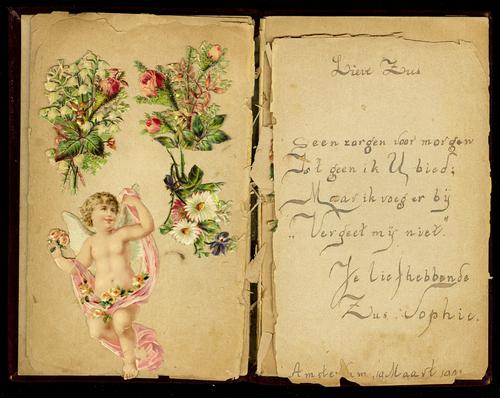 Lieve Zus
Geen zorgen voor morgen
Is 't geen ik U bied;
Maar ik voeg er bij
„Vergeet mij niet."
Je liefhebbende
Zus. Sophie.
Maart